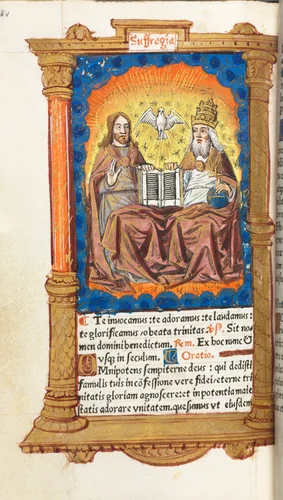 Suffragia
Te inuocamus: te adoramus: te laudamus:
te glorificamus o beata trinitas. ℣. Sit no-
men domini benedictum. Rem. Ex hoc nunc &
vsq; in seculum. Oratio.
OMnipotens sempiterne deus: qui dedisti
famulis tuis in cōfessione vere fidei eterne tri
nitatis gloriam agnoscere: et in potentia maie
statis adorare vnitatem. quesumus vt eiusdem